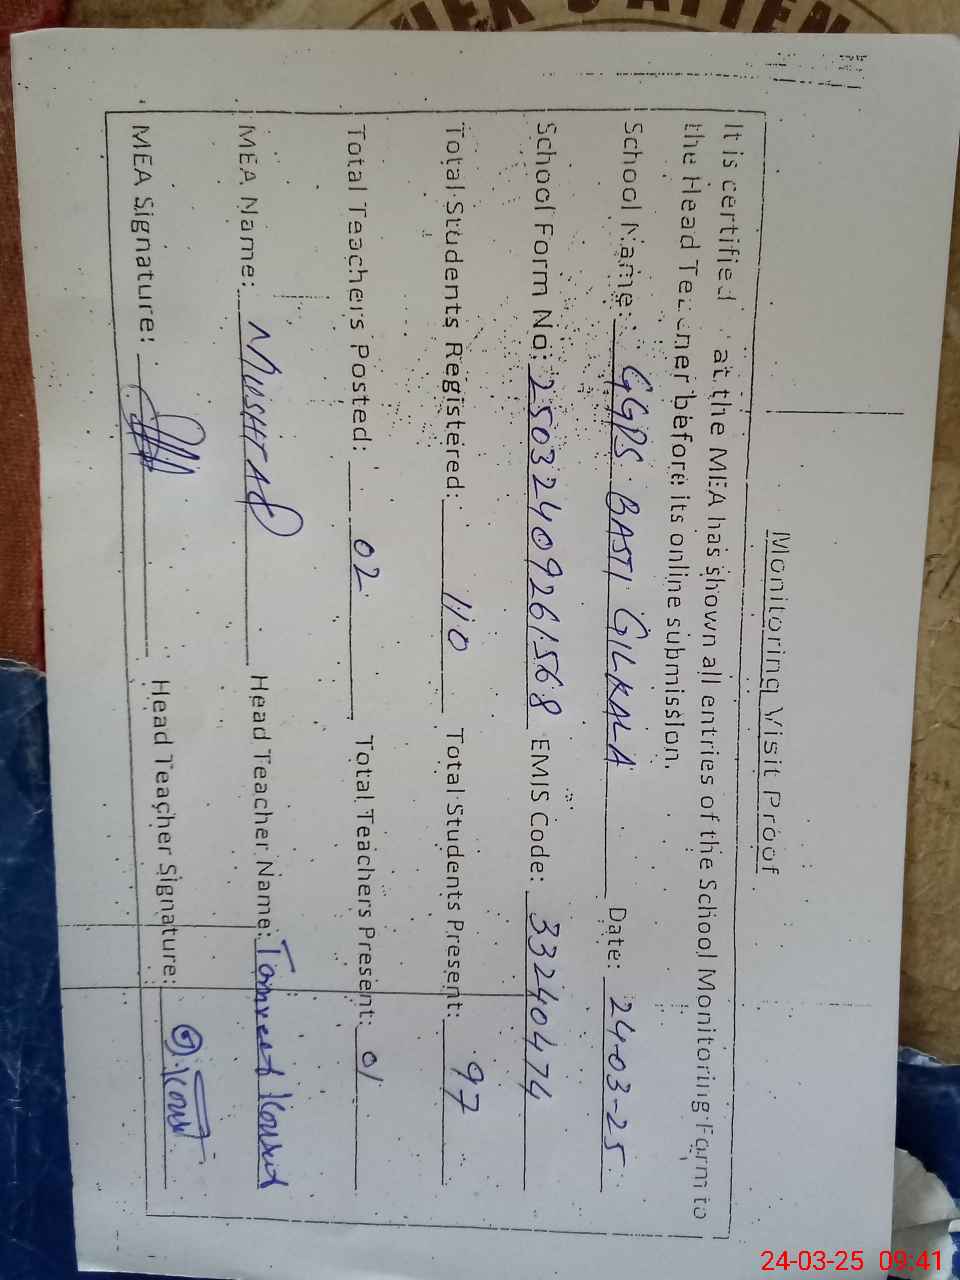 Monitoring Visit Proof
It is certified that the MEA has shown all entries of the School Monitoring Form to
the Head Teacher before its online submission.
School Name: GGPS BASTI GILKALA Date: 24-03-25
School Form No: 250324092615 68 EMIS Code: 33240474
Total Students Registered: 110 Total Students Present: 97
Total Teachers Posted: 02 Total Teachers Present: 01
MEA Name: MUSHTAQ Head Teacher Name:
MEA Signature: Head Teacher Signature:
24-03-25 09:41